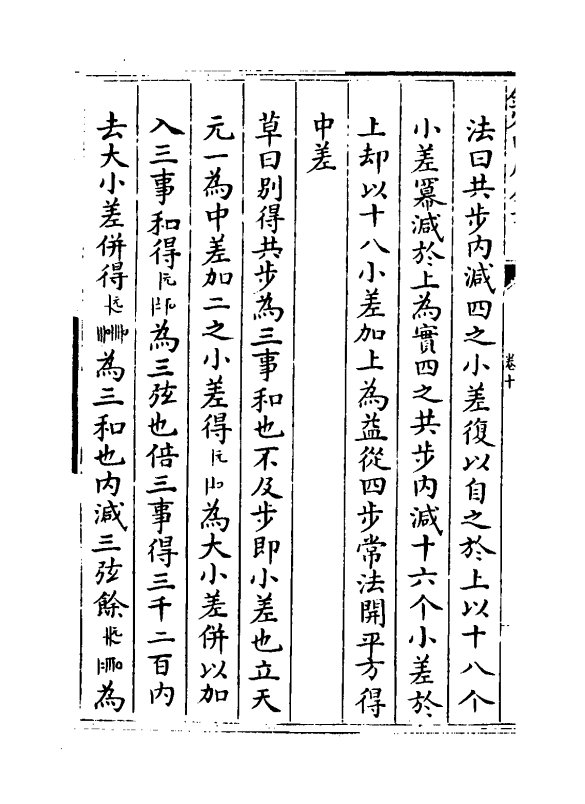 卷十
法曰共步内減四之小差復以自之於上以十八个
小差冪減於上為實四之共步内減十六个小差於
上却以十八小差加上為益從四步常法開平方得
中差
草曰別得共步為三事和也不及步即小差也立天
元一為中差加二之小差得 元 為大小差併以加
入三事和得 元 為三弦也倍三事得三千二百内
去大小差併得 元 為三和也内減三弦餘 元 為